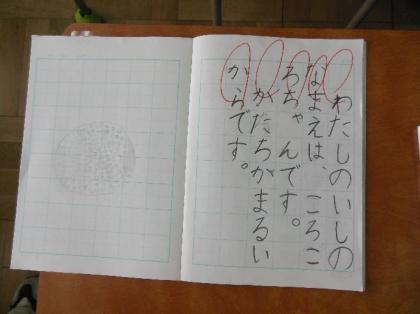 わたしのいしの
なまえは、ころこ
ろちゃんです。
かたちがまるい
からです。